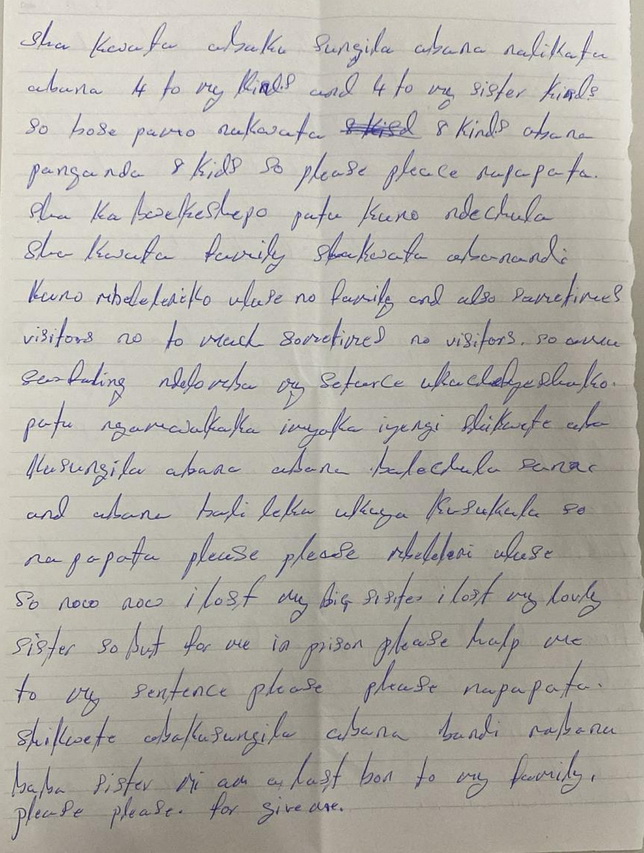 sha kwata abaku sungila abana nalikata
abana 4 to my kinds and 4 to my sister kinds
so bose pamo nakwata 8 kinds abana
panganda 8 kids so please pleace napapata.
sha ka bwelkeshepo patu kuno ndechula
sha kwata family shakwata abanandi
kuno mbeleleniko uluse no family and also sometimes
visitors no to much sometimes no visitors. so
ndelomba my setarce
patu imyaka iyengi shikwete aba
kusungila abana abana balechula sana
and abana bali leka ukuya kusukulu so
na papata please please mbeleleni uluse
so now now i lost my big sister i lost my lovly
sister so but for me in prison please halp me
to my sentence please please napapata.
shikwete abakusungila abana bandi nabana
baba sister ni am a last bon to my family.
please please. for give me.